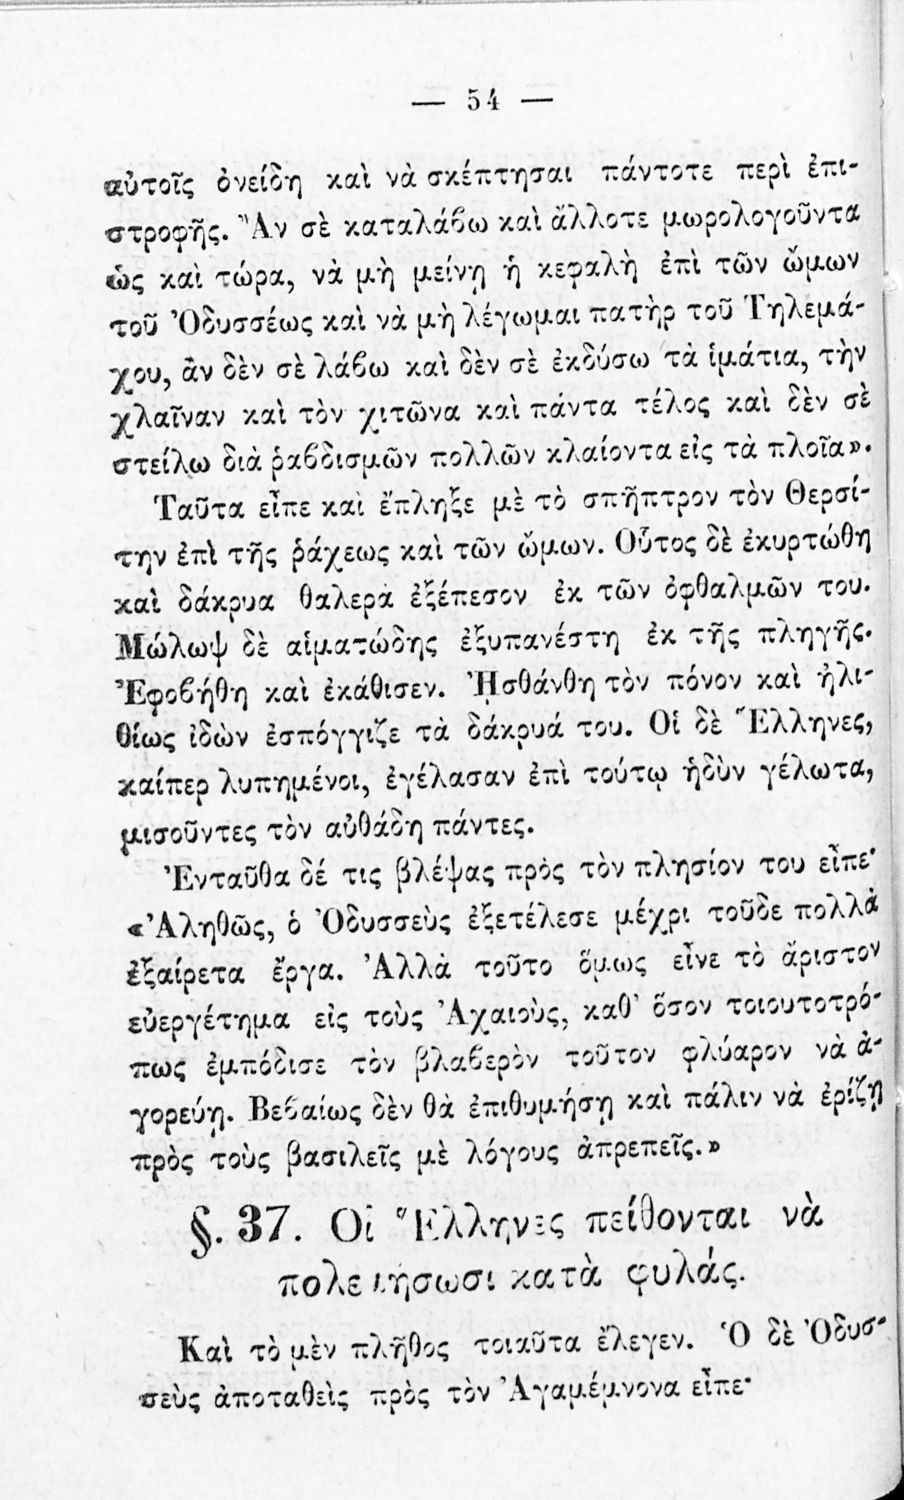 — 54 —
αὐτοῖς ὀνείδη καὶ νὰ σκέπτησαι πάντοτε περὶ ἐπι-
στροφῆς. Ἂν σὲ καταλάβω καὶ ἄλλοτε μωρολογοῦντα
ὡς καὶ τώρα, νὰ μὴ μείνῃ ἡ κεφαλὴ ἐπὶ τῶν ὤμων
τοῦ Ὀδυσσέως καὶ νὰ μὴ λέγωμαι πατὴρ τοῦ Τηλεμά-
χου, ἂν δὲν σὲ λάβω καὶ δὲν σὲ ἐκδύσω τὰ ἱμάτια, τὴν
χλαῖναν καὶ τὸν χιτῶνα καὶ πάντα τέλος καὶ δὲν σὲ
στείλω διὰ ῥαβδισμῶν πολλῶν κλαίοντα εἰς τὰ πλοῖα».
Ταῦτα εἶπε καὶ ἔπληξε μὲ τὸ σπῆπτρον τὸν Θερσί-
την ἐπὶ τῆς ῥάχεως καὶ τῶν ὤμων. Οὗτος δὲ ἐκυρτώθη
καὶ δάκρυα θαλερὰ ἐξέπεσον ἐκ τῶν ὀφθαλμῶν του.
Μώλωψ δὲ αἱματώδης ἐξυπανέστη ἐκ τῆς πληγῆς.
Ἐφοβήθη καὶ ἐκάθισεν. Ἠσθάνθη τὸν πόνον καὶ ἠλι-
θίως ἰδὼν ἐσπόγγιζε τὰ δάκρυά του. Οἱ δὲ Ἕλληνες,
καίπερ λυπημένοι, ἐγέλασαν ἐπὶ τούτῳ ἡδὺν γέλωτα,
μισοῦντες τὸν αὐθάδη πάντες.
Ἐνταῦθα δέ τις βλέψας πρὸς τὸν πλησίον του εἶπε·
«Ἀληθῶς, ὁ Ὀδυσσεὺς ἐξετέλεσε μέχρι τοῦδε πολλὰ
ἐξαίρετα ἔργα. Ἀλλὰ τοῦτο ὅμως εἶνε τὸ ἄριστον
εὐεργέτημα εἰς τοὺς Ἀχαιοὺς, καθ᾽ ὅσον τοιουτοτρό-
πως ἐμπόδισε τὸν βλαβερὸν τοῦτον φλύαρον νὰ ἀ-
γορεύῃ. Βεβαίως δὲν θὰ ἐπιθυμήσῃ καὶ πάλιν νὰ ἐρίζῃ
πρὸς τοὺς βασιλεῖς μὲ λόγους ἀπρεπεῖς.»
§. 37. Οἱ Ἕλληνες πείθονται νὰ
πολεμήσωσι κατὰ φυλάς.
Καὶ τὸ μὲν πλῆθος τοιαῦτα ἔλεγεν. Ὁ δὲ Ὀδυσ-
σεὺς ἀποταθεὶς πρὸς τὸν Ἀγαμέμνονα εἶπε·